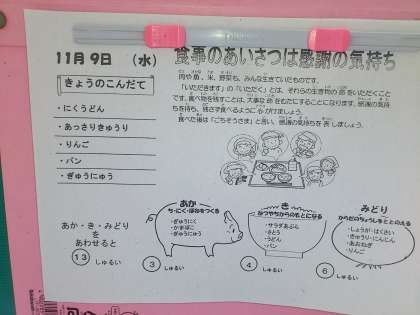 11月9日 (水)
食事のあいさつは感謝の気持ち
きょうのこんだて
・にくうどん
・あっさりきゅうり
・りんご
・パン
・ぎゅうにゅう
肉や魚、米、野菜も、みんな生きていたものです。
「いただきます」の「いただく」とは、それらの生き物の命をいただくこと
です。食べ物を残すことは、大事な命をむだにすることになります。感謝の気持
ちを持ち、残さず食べるように心がけましょう。
食べた後は「ごちそうさま」と言い、感謝の気持ちを表しましょう。
あか・き・みどり
を
あわせると
13 しゅるい
あか
ち・にく・ほねをつくる
・ぎゅうにく
・かまぼこ
・ぎゅうにゅう
3 しゅるい
き
ねつやちからのもとになる
・サラダあぶら
・さとう
・うどん
・パン
4 しゅるい
みどり
からだのちょうしをととのえる
・しょうが・はくさい
・きゅうり・にんじん
・あおねぎ
・りんご
6 しゅるい